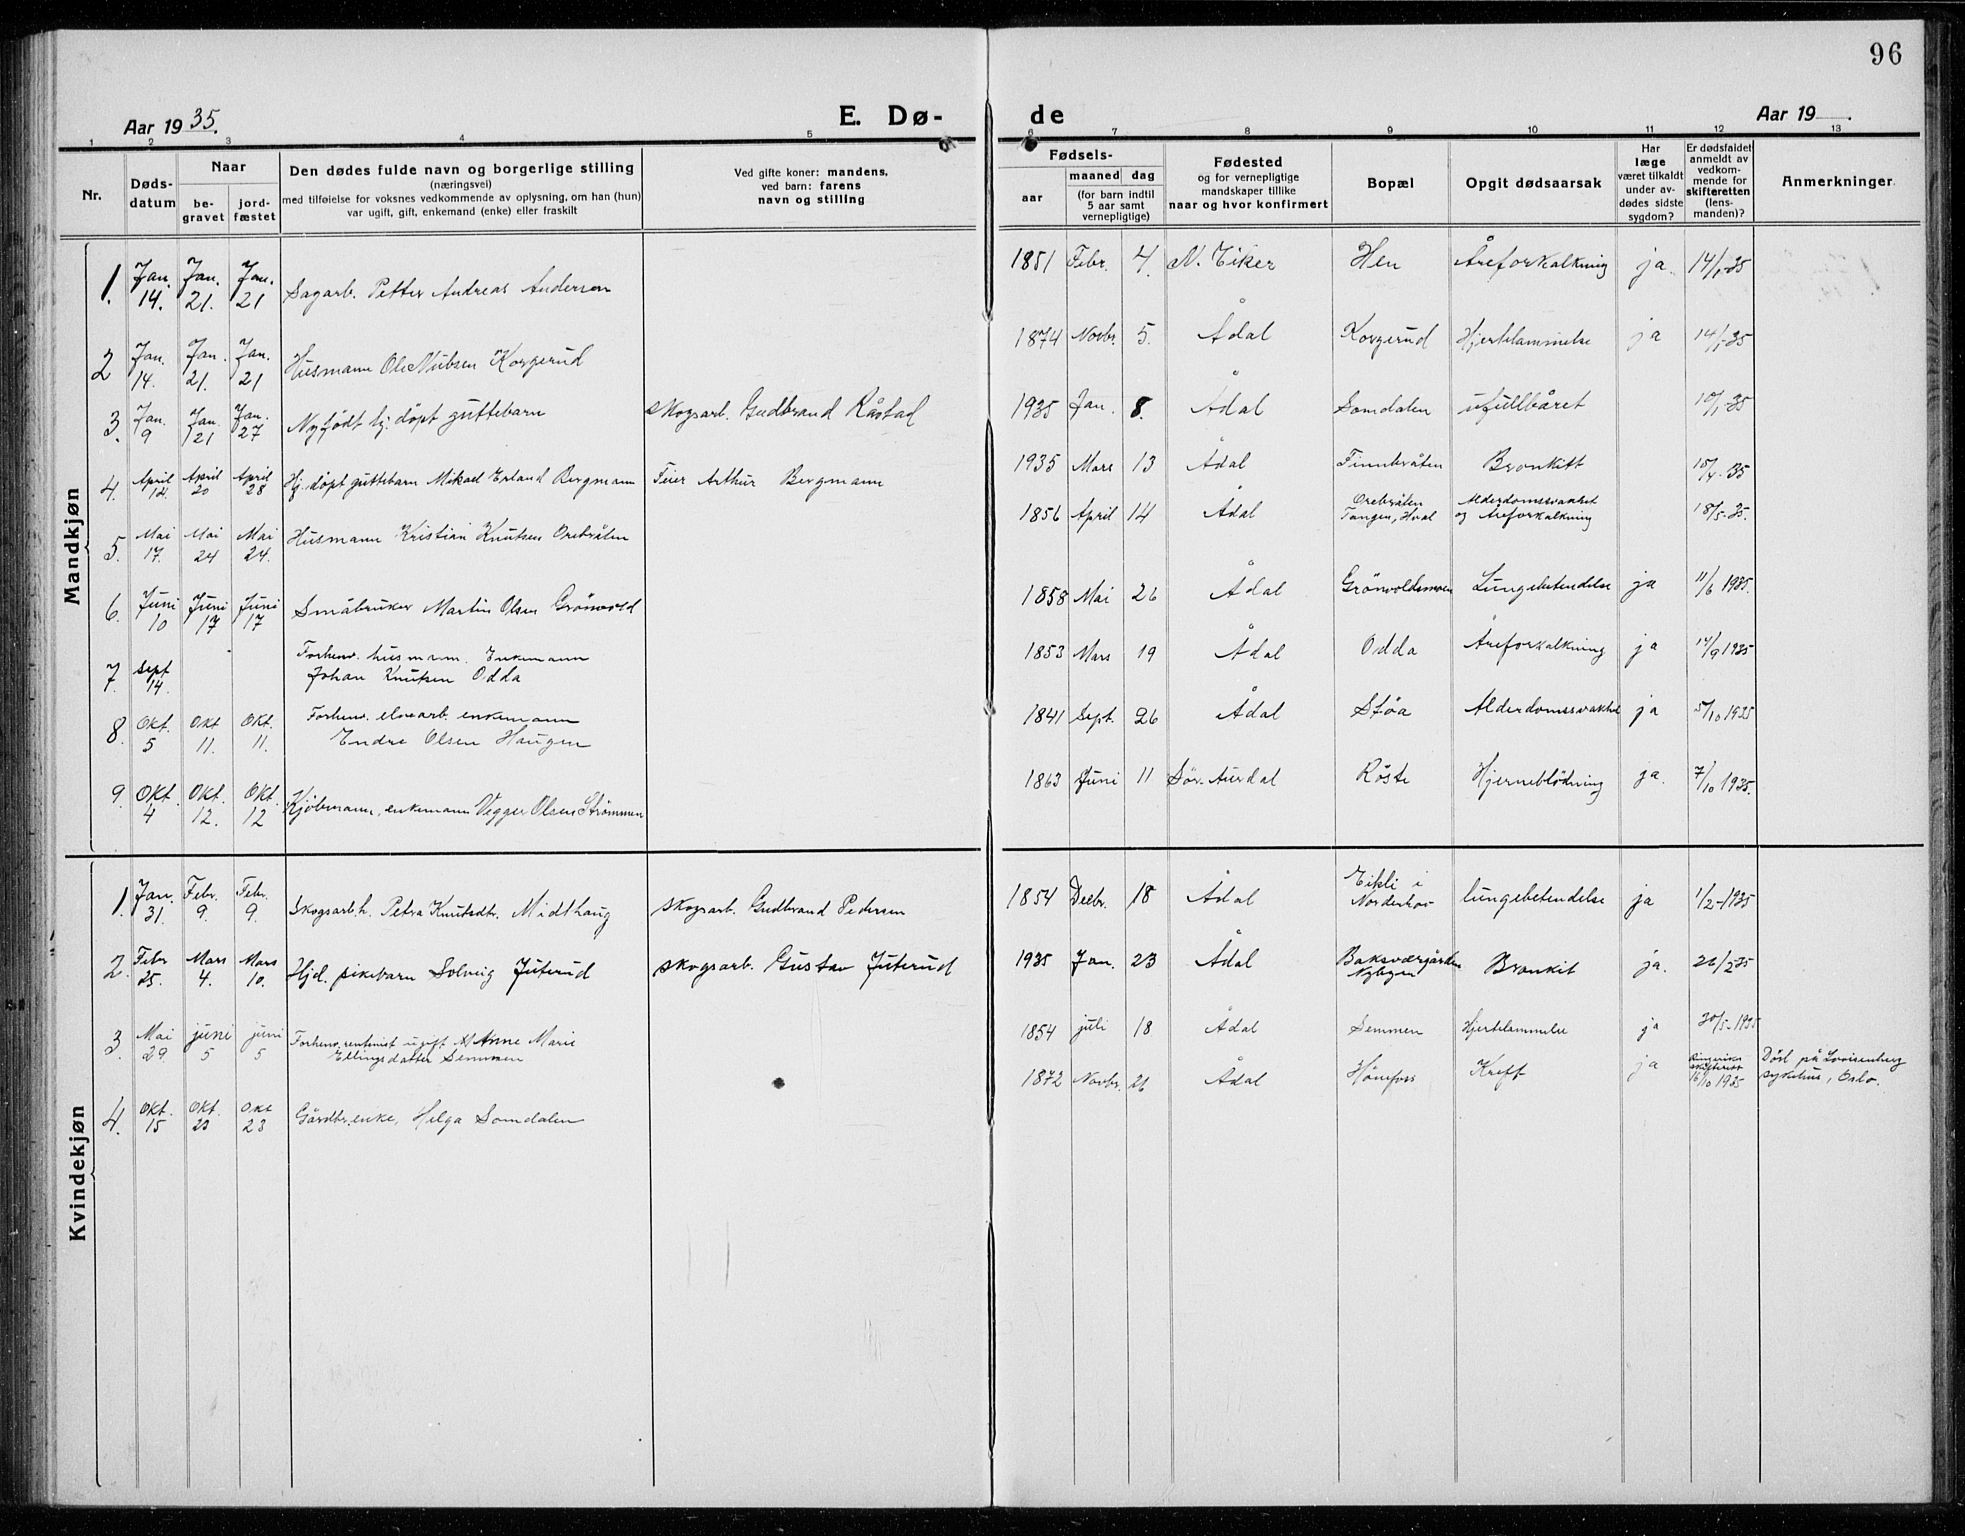 96
Aar 1935.
E. Dø-
de
Aar 19
1 2 3 4 5 6 7 8 9 10 11 12 13
Nr.
Døds-
datum
Naar
be-
gravet
jord-
fæstet
Den dødes fulde navn og borgerlige stilling
(næringsvei)
med tilføielse for voksnes vedkommende av oplysning, om han (hun)
var ugift, gift, enkemand (enke) eller fraskilt
Ved gifte koner: mandens,
ved barn: farens
navn og stilling
Fødsels-
aar
maaned dag
(for barn indtil
5 aar samt
vernepligtige)
Fødested
og for vernepligtige
mandskaper tillike
naar og hvor konfirmert
Bopæl
Opgit dødsaarsak
Har
læge
været tilkaldt
under av-
dødes sidste
sygdom?
Er dødsfaldet
anmeldt av
vedkom-
mende for
skifteretten
(lens-
manden)?
Anmerkninger.
Mandkjøn
1. Jan. 14. Jan. 21. Jan. 21 Sagarb. Petter Andreas Andersen 1851 Febr. 4. N. Eiker Hen Åreforkalkning ja. 14/1-35
2 Jan. 14. Jan. 21. Jan. 21 Husmann Ole Nubsen Korgerud 1874 Novbr. 5. Ådal Korgerud Hjertelammelse ja 14/1-35
3. Jan. 9 Jan. 21 Jan. 27 Nyfödt hj. döpt guttebarn skogsarb. Gudbrand Råstad 1935 Jan. 8. Ådal Somdalen ufullbåret 10/1-35
4. April 14 April 20 April 28 Hj. döpt guttebarn Mikael Erland Bergmann Feier Arthur Bergmann 1935 Mars 13 Ådal Finnbråten Bronkitt 15/4-35
5. Mai 17. Mai 24 Mai 24. Husmann Kristian Knutsen Orebråten 1856 April 14 Ådal Orebråten Tangen, Hval Alderdomssvakhet og Åreforkalkning 18/5-35.
6. Juni 10 Juni 17 Juni 17 Småbruker Martin Olsen Grönvold 1858 Mai 26 Ådal Grönvoldsmoen Lungebetendelse ja 11/6 1935.
7. Sept 14. Forhenv. husmann. Enkemann Johan Knutsen Odda 1853 Mars 19 Ådal Odda Åreforkalkning ja 14/9 1935
8. Okt. 5 Okt 11. Okt. 11. Forhenv. elvearb. enkemann Endre Olsen Haugen 1841 Sept. 26 Ådal Støa Alderdomssvakhet ja 5/10 1935
9. Okt. 4 Okt. 12. Okt. 12 Kjöbmann, enkemann Vegger Olsen Strømmen 1863 Juni 11 Sör. Aurdal Röste Hjerneblödning ja. 7/10 1935.
Kvindekjøn
1. Jan. 31. Febr. 9. Febr. 9. Skogsarb.h. Petra Knutsdtr. Midthaug skogsarb. Gudbrand Pedersen 1854 Decbr. 18 Ådal Eikli i Norderhov lungebetendelse ja 1/2-1935
2. Febr 25. Mars 4. Mars 10. Hjd. pikebarn Solveig Juterud skogsarb. Gustav Juterud 1935 Jan. 23 Ådal Baksværgården Nybyen Bronkit ja. 26/2 35
3. Mai 29. juni 5 juni 5 Forhenv. rentenist ugift Anne Marie Ellingsdatter Semmen 1854 juli 18 Ådal Semmen Hjertelammelse ja 30/5-1935
4. Okt. 15 Okt. 23 Okt 23 Gårdbr.enke, Helga Somdalen 1872 Novbr. 26 Ådal Hönefoss Kreft ja Ringerike skifterett 16/10 1935 Död på Lovisenberg sykehus, Oslo.